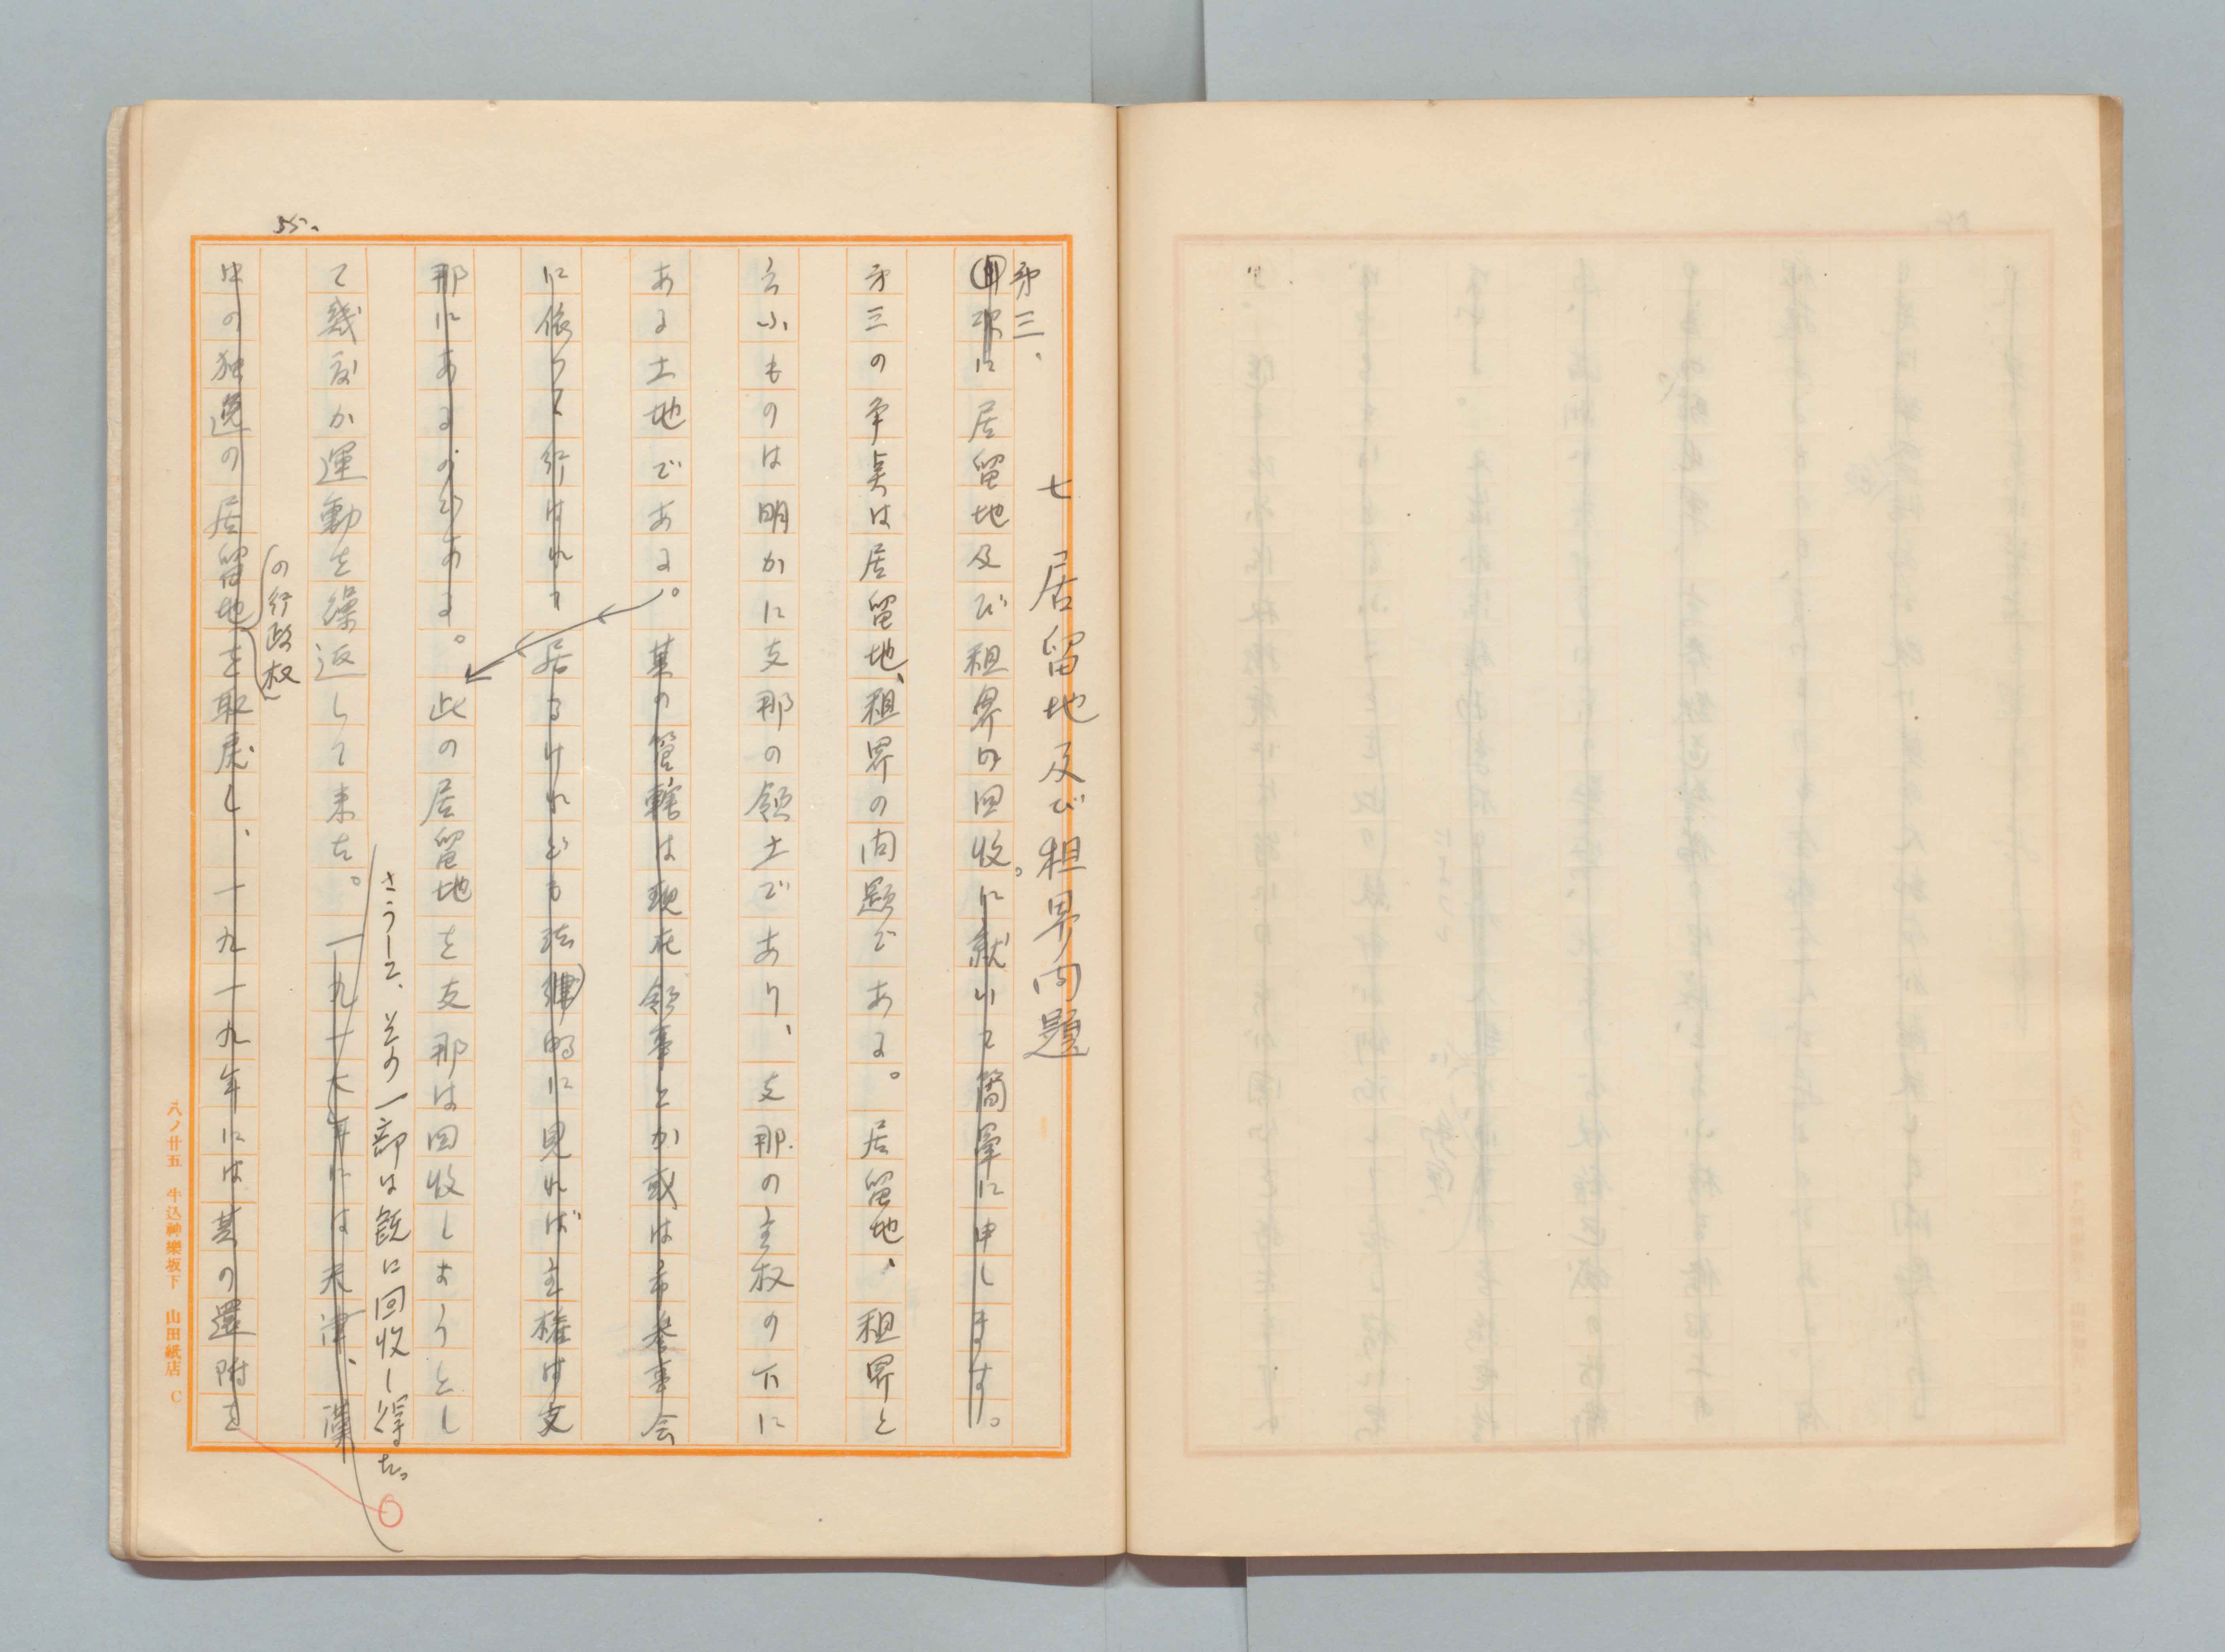 55.
七 居留地及び租界問題
第三、
次に居留地及び租界の回收に就いて簡単に申します。
第三の争点は居留地、租界の问題である。居留地、租界と
云ふものは明かに支那の領土であり、支那の主权の下に
ある土地である。其の管轄は現在領事とか或は市参事会
に依つて行はれて居るけれども法律的に見れば主権は支
那にあるのである。此の居留地を支那は回收しようとし
て幾度か運動を繰返して来た。一九一七年には天津、漢
さうして、その一部は既に回收し得た。
の行政权
口の独逸の居留地を取戻し、一九一九年には其の還附を
八ノ廿五 牛込神樂坂下 山田紙店 C